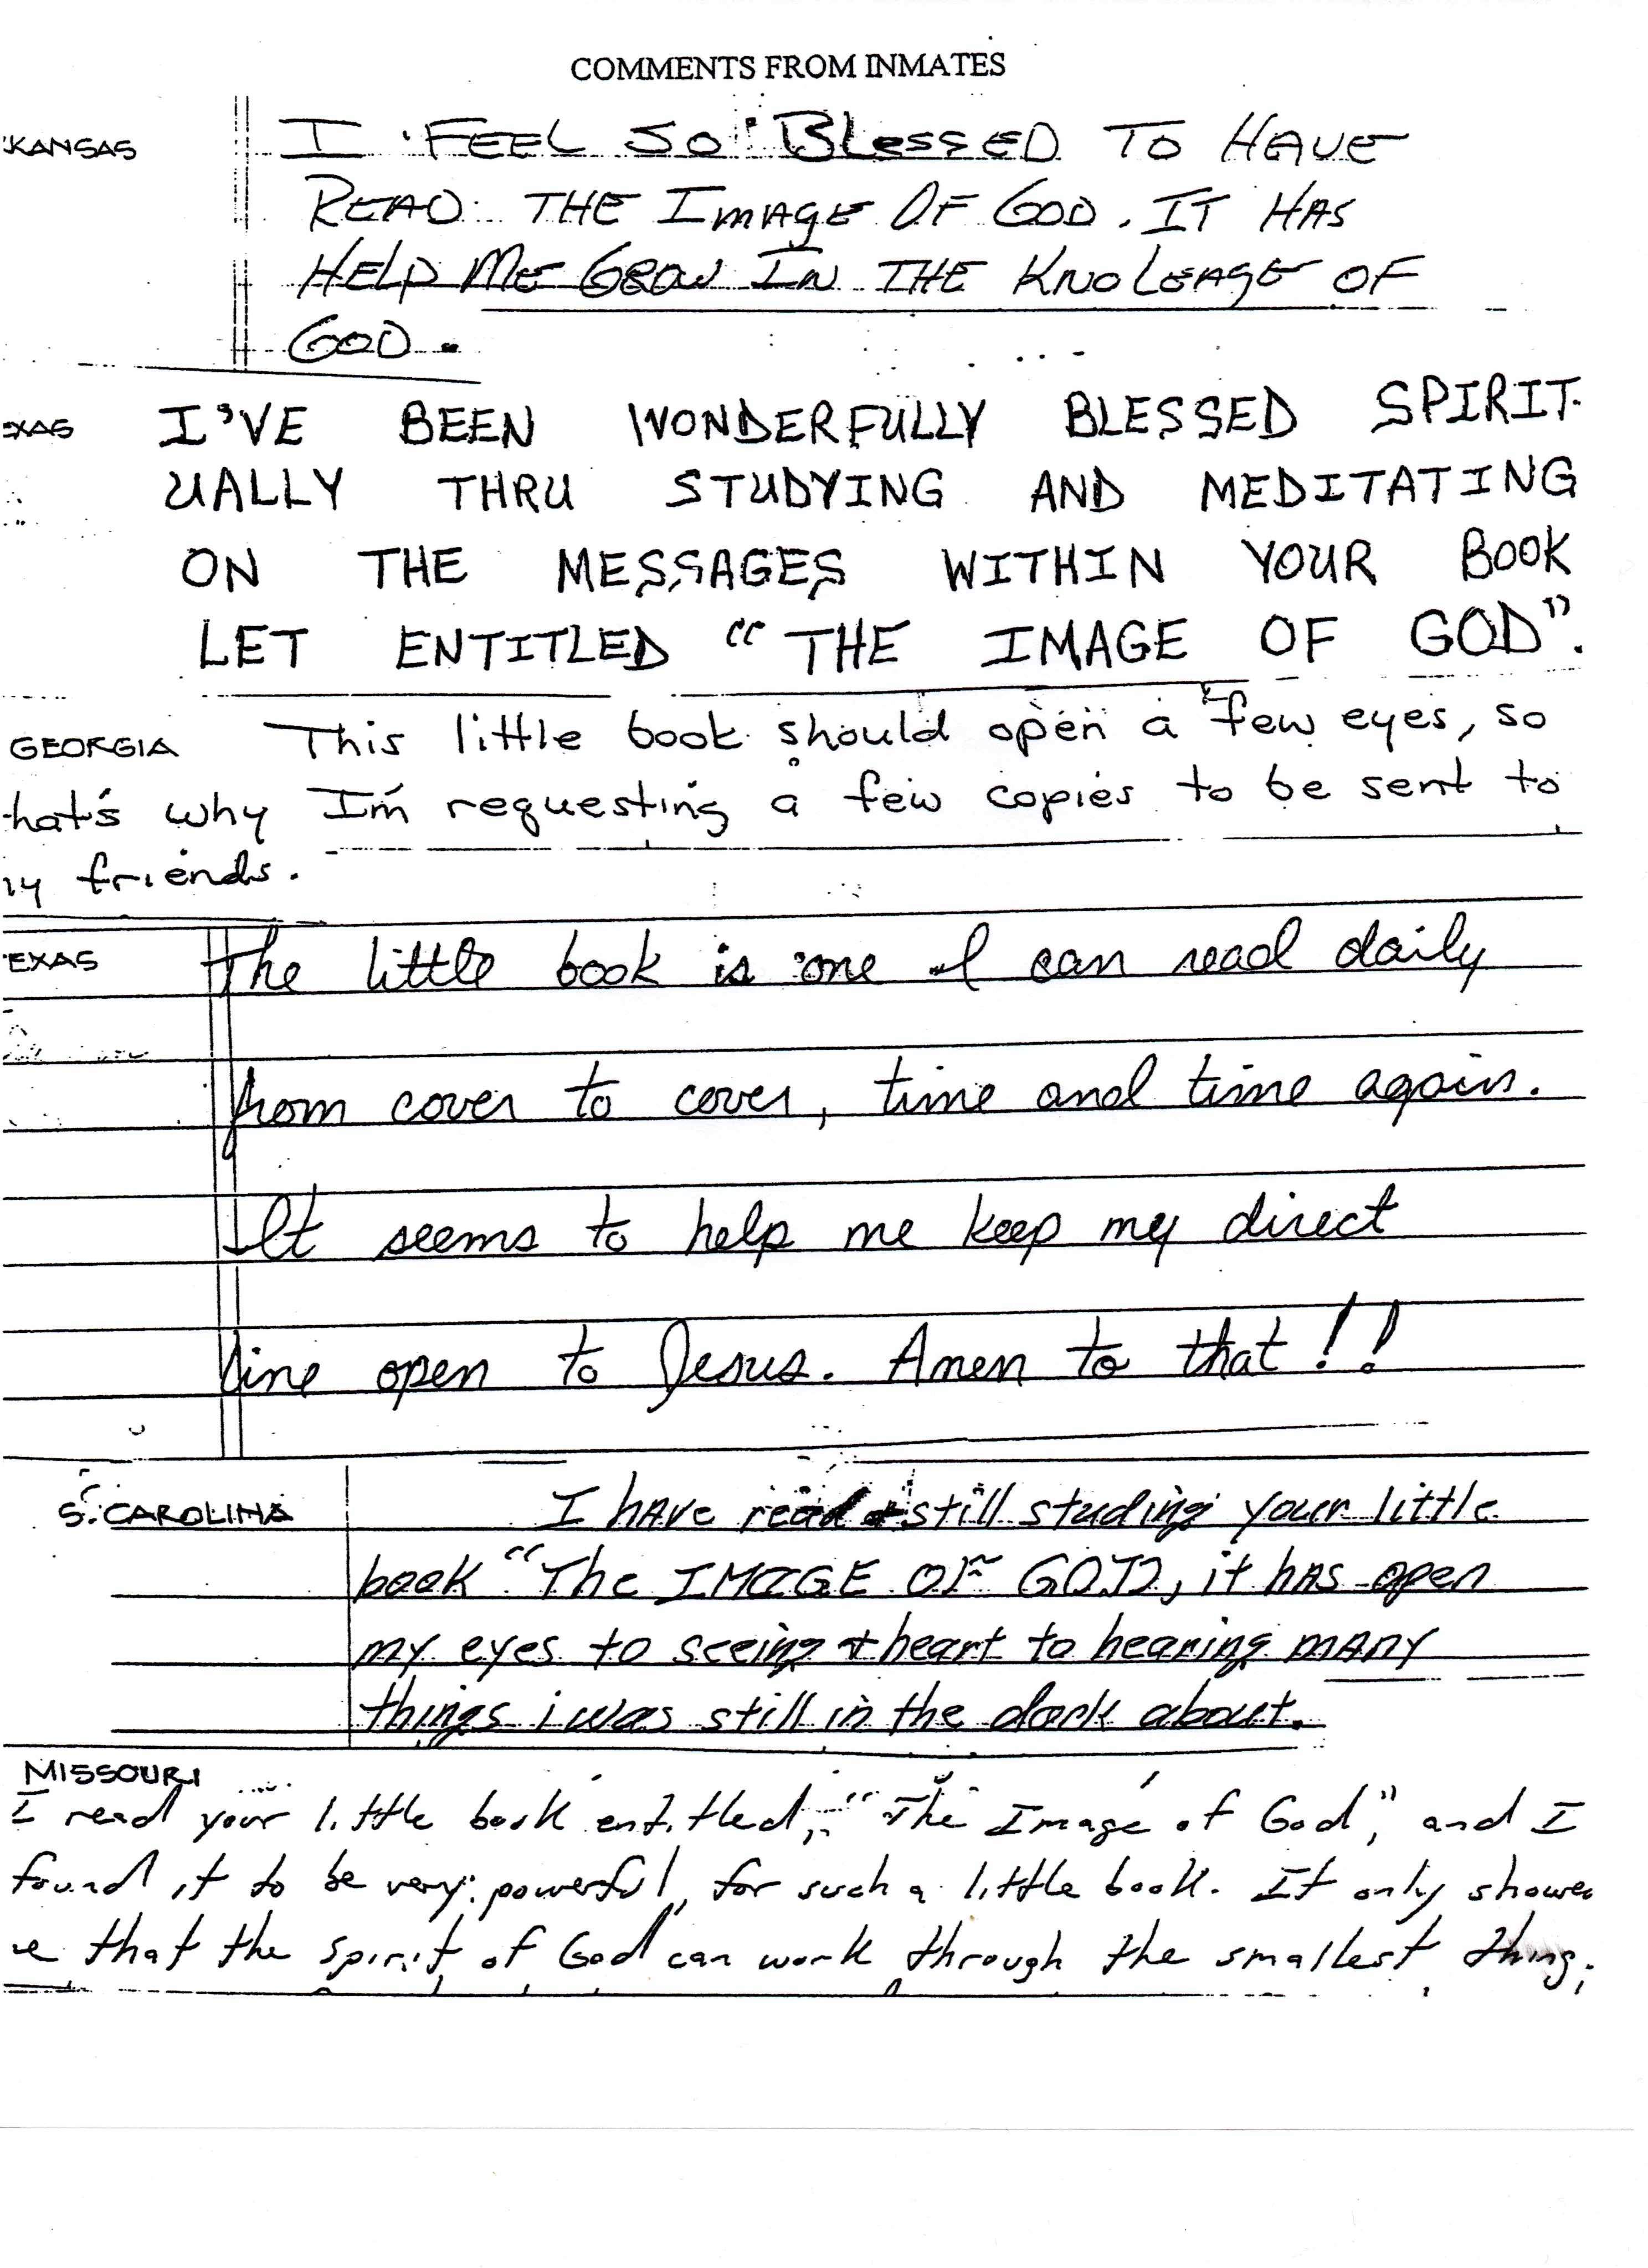 COMMENTS FROM INMATES
KANSAS I FEEL SO BLessED TO HAVE
READ THE ImAgE OF GOD. IT HAS
HELP ME GROW IN THE KNOLEAGE OF
GOD.
EXAS I'VE BEEN WONDERFULLY BLESSED SPIRIT-
UALLY THRU STUDYING AND MEDITATING
ON THE MESSAGES WITHIN YOUR BOOK
LET ENTITLED "THE IMAGE OF GOD".
GEORGIA This little book should open a few eyes, so
hat's why I'm requesting a few copies to be sent to
my friends.
EXAS The little book is one I can read daily
from cover to cover, time and time again.
It seems to help me keep my direct
line open to Jesus. Amen to that!!
S. CAROLINA I HAVe read + still studing your little
book "The IMAGE OF GOD, it HAS open
my eyes to seeing + heart to hearing MANY
things i was still in the dark about.
MISSOURI
I read your little book entitled, "The Image of God," and I
found it to be very powerful, for such a little book. It only showes
me that the spirit of God can work through the smallest thing.